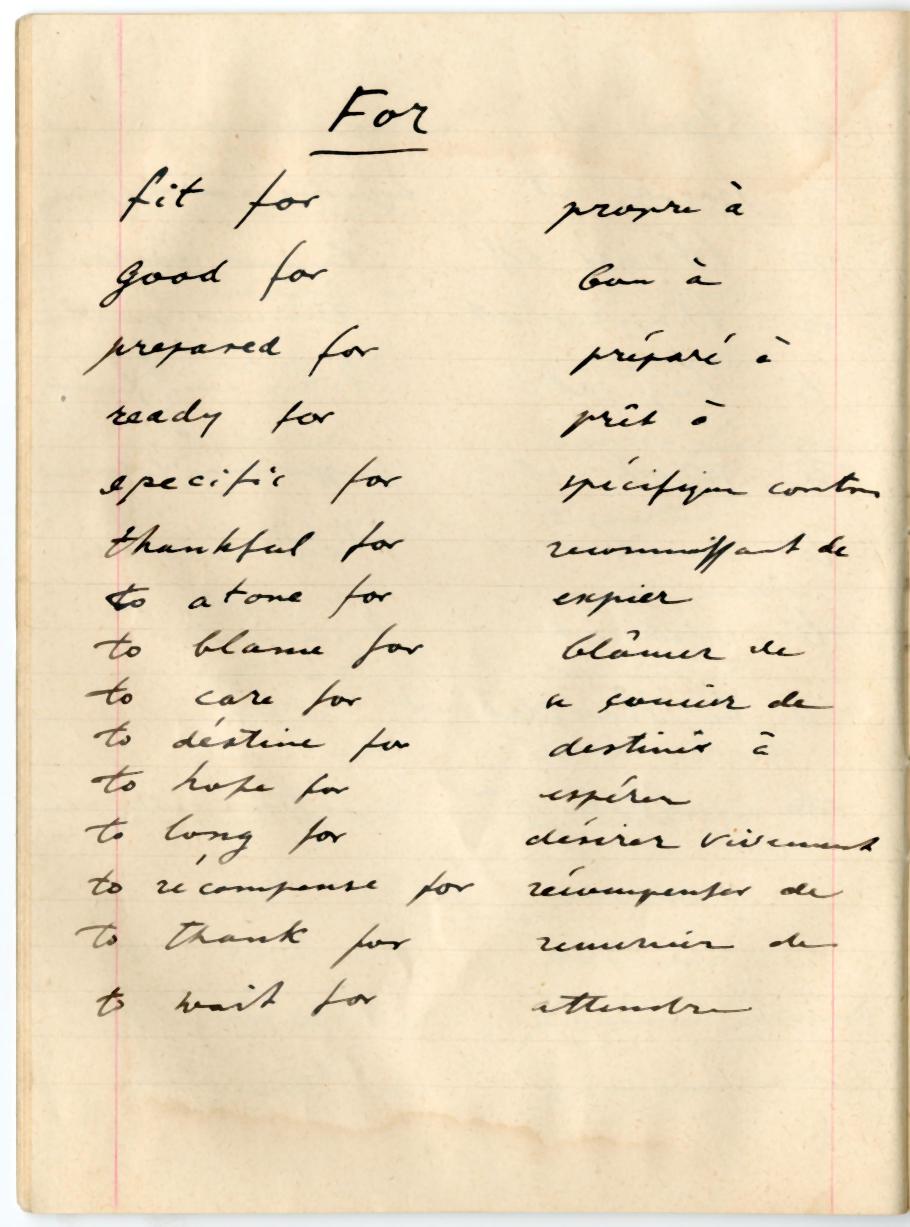 For
fit for propre à
good for bon à
prepared for préparé à
ready for prêt à
specific for spécifique contre
thankful for reconnaissant de
to atone for expier
to blame for blâmer de
to care for se soucier de
to déstine for destiner à
to hope for espérer
to long for désirer vivement
to récompense for récompenser de
to thank for remercier de
to wait for attendre